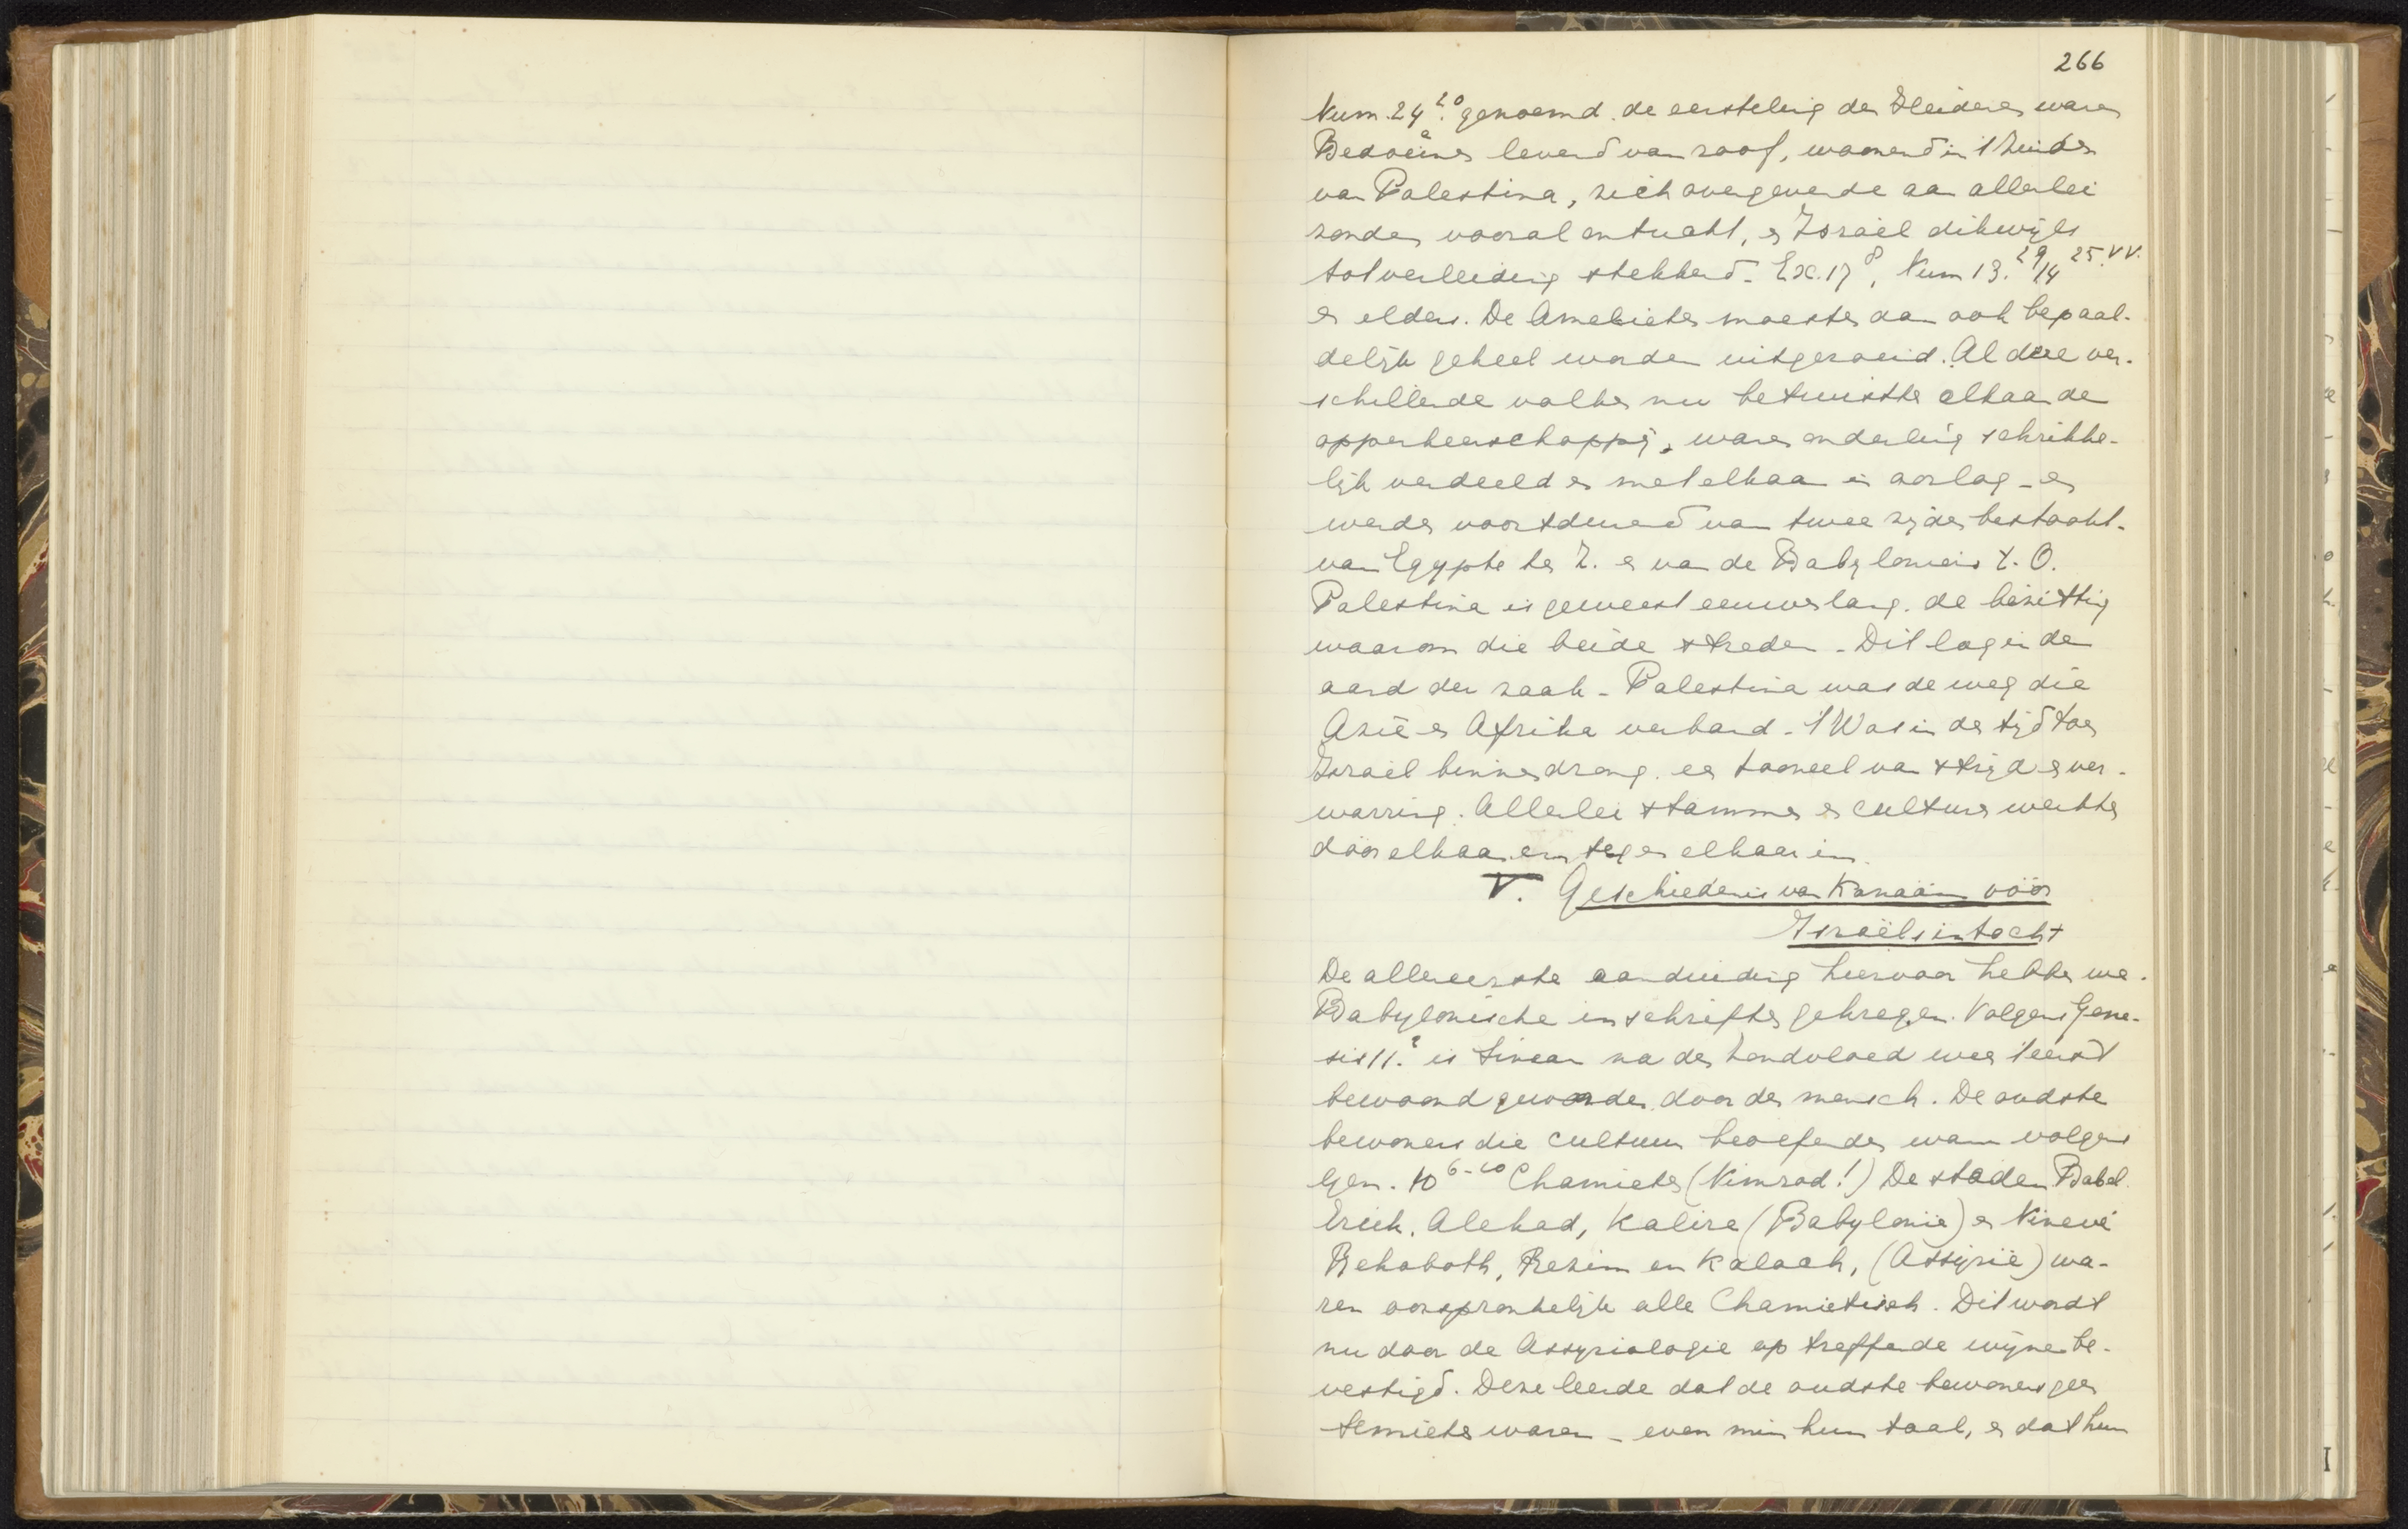 266
Num. 24²⁰. genoemd. de eersteling der Heidenen waren
Bedoeïnen levend van roof, woonend in 't Zuiden
van Palestina, zich overgevende aan allerlei
zonden vooral ontucht, en Israël dikwijls
tot verleiding strekkend. Ex. 17⁸, Num 13.²⁹/14 ²⁵·vv.
en elders. De Amelieten moesten dan ook bepaal-
delijk geheel worden uitgeroeid. Al deze ver-
schillende volken nu betwistten elkaar de
opperheerschappij, waren onderling schrikke-
lijk verdeeld en met elkaar in oorlog – en
werden voortdurend van twee zijden bestookt.
van Egypte ten Z. en van de Babyloniers t. O.
Palestina is geweest eeuwenlang. de bezitting
waarom die beide streden – Dit lag in den
aard der zaak – Palestina was de weg die
Azië en Afrika verband – 't Was in den tijd toen
Israël binnendrong. een tooneel van strijd en ver-
warring. Allerlei stammen en culturen werkten
door elkaar en tegen elkaar in.
V. Geschiedenis van Kanaän vóór
Israëls intocht
De allereerste aanduiding hiervan hebben we
Babylonische inschriften gekregen. Volgens Gene-
sis 11.² is Sinear na den zondvloed weer 't eerst
bewoond geworden door den mensch. De oudste
bewoners die cultuur beoefenden waren volgens
Gen. 10⁶⁻¹⁰ Chamieten (Nimrod!) De steden Babel
Erech. Alekad, Kalire (Babylonië) en Ninevé
Rehoboth, Rezim en Kalach, (Assyrië) wa-
ren oorspronkelijk alle Chamietisch. Dit wordt
nu door de Assyriologie op treffende wijze be-
vestigd. Deze leerde dat de oudste bewoners geen
Semieten waren – even min hun taal, en dat hun